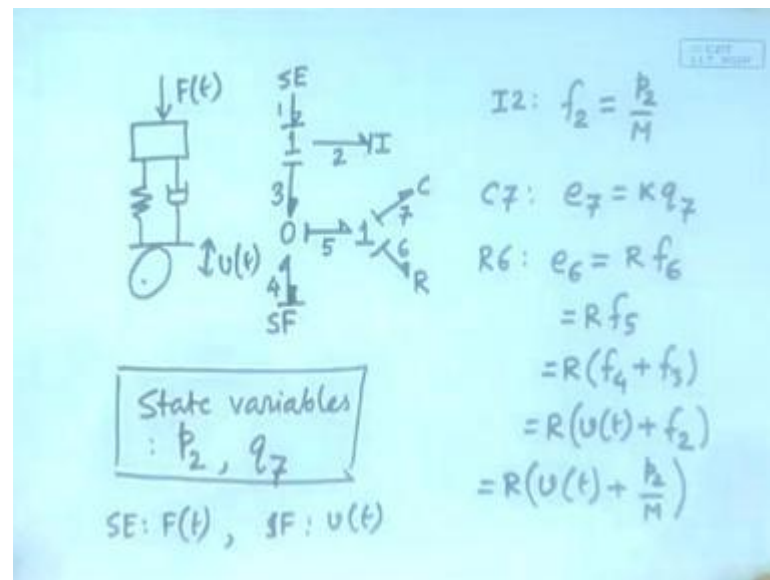 F(t)
SE
1
1
2
I
3
0
5
1
7
C
6
R
U(t)
4
SF
State variables
: p₂, q₇
SE: F(t), SF: U(t)
I2: f₂ = p₂/M
C7: e₇ = Kq₇
R6: e₆ = Rf₆
= Rf₅
= R(f₄ + f₃)
= R(U(t) + f₂)
= R(U(t) + p₂/M)